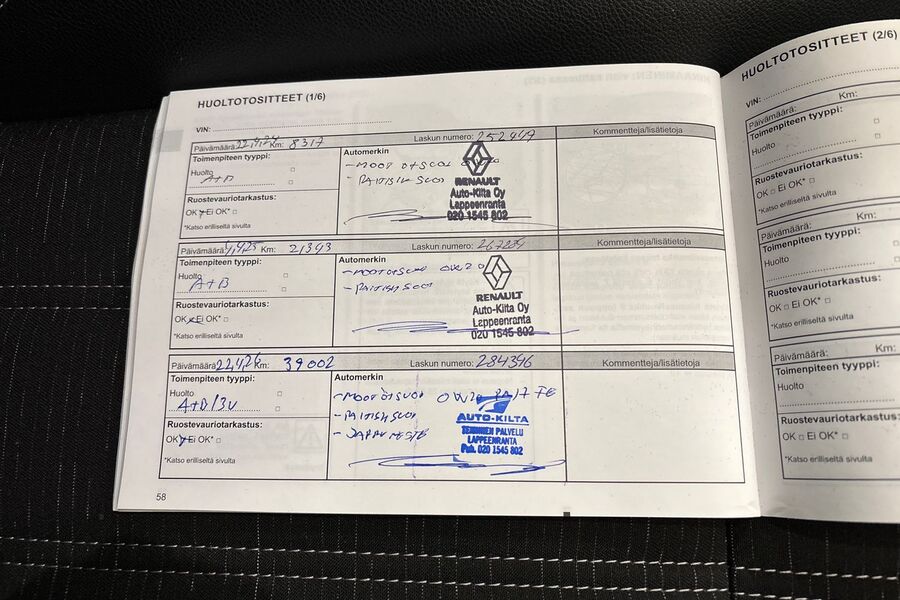 HUOLTOTOSITTEET (1/6)
VIN:
Päivämäärä: 22,4,24 Km: 8317 Laskun numero: 252447 Kommentteja/lisätietoja
Toimenpiteen tyyppi:
Huolto
A+B
Ruostevauriotarkastus:
OK Ei OK*
*Katso erilliseltä sivulta
Automerkin
RENAULT
Auto-Kilta Oy
Lappeenranta
020 1545 802
Päivämäärä: Km: 21343 Laskun numero: Kommentteja/lisätietoja
Toimenpiteen tyyppi:
Huolto
A+B
Ruostevauriotarkastus:
OK Ei OK*
*Katso erilliseltä sivulta
Automerkin
RENAULT
Auto-Kilta Oy
Lappeenranta
020 1545 802
Päivämäärä: 22,4,26 Km: 39002 Laskun numero: 284346 Kommentteja/lisätietoja
Toimenpiteen tyyppi:
Huolto
A+B/3V
Ruostevauriotarkastus:
OK Ei OK*
*Katso erilliseltä sivulta
Automerkin
AUTO-KILTA
PALVELU
LAPPEENRANTA
Puh. 020 1545 802
58
HUOLTOTOSITTEET (2/6)
VIN:
Päivämäärä: Km:
Toimenpiteen tyyppi:
Huolto
Ruostevauriotarkastus:
OK Ei OK*
*Katso erilliseltä sivulta
Päivämäärä: Km:
Toimenpiteen tyyppi:
Huolto
Ruostevauriotarkastus:
OK Ei OK*
*Katso erilliseltä sivulta
Päivämäärä: Km:
Toimenpiteen tyyppi:
Huolto
Ruostevauriotarkastus:
OK Ei OK*
*Katso erilliseltä sivulta